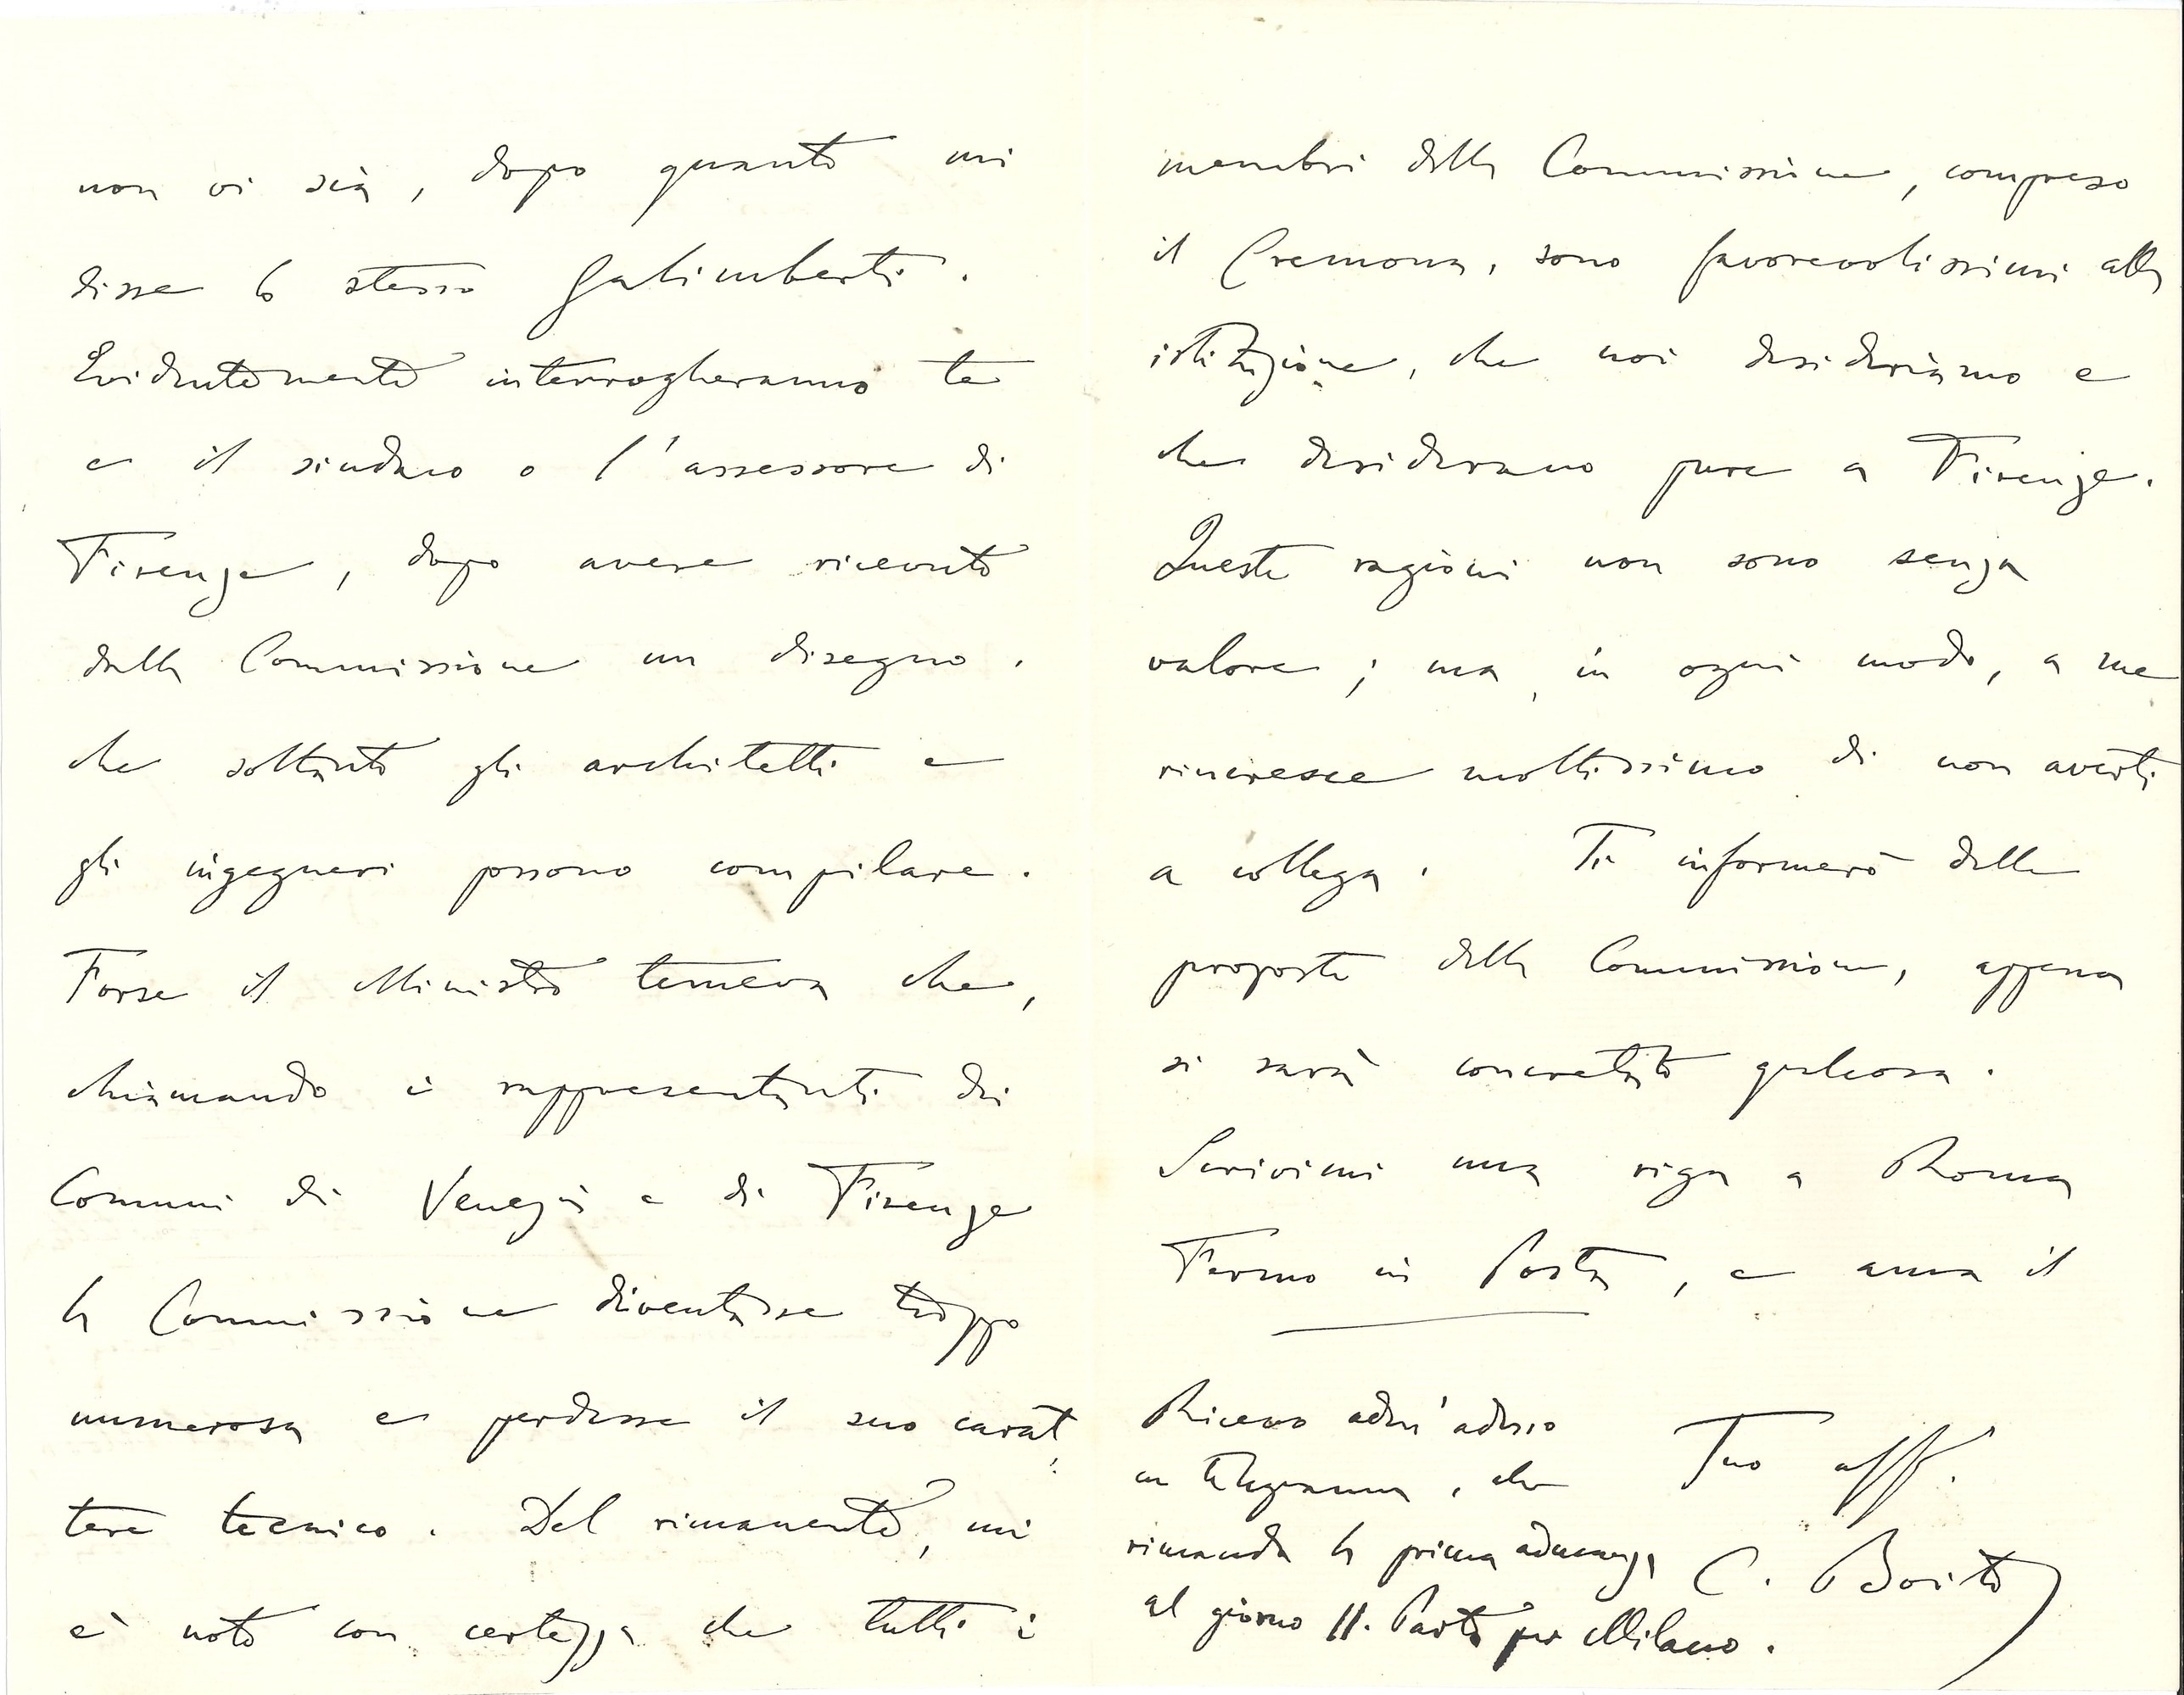 non vi sia, dopo quanto mi
disse lo stesso Galimberti.
Evidentemente interrogheranno te
e il sindaco o l'assessore di
Firenze, dopo avere ricevuto
dalla Commissione un disegno,
che soltanto gli architetti e
gli ingegneri possono compilare.
Forse il Ministro temeva che,
chiamando i rappresentanti dei
Comuni di Venezia e di Firenze
la Commissione diventasse troppo
numerosa e perdesse il suo carat
tere tecnico. Del rimanente, mi
è noto con certezza che tutti i
membri della Commissione, compreso
il Cremona, sono favorevolissimi alla
istituzione, che noi desideriamo e
che desiderano pure a Firenze.
Queste ragioni non sono senza
valore; ma, in ogni modo, a me
rincresce moltissimo di non averti
a collega. Ti informerò delle
proposte della Commissione, appena
si sarà concretato qualcosa.
Scrivimi una riga a Roma
Fermo in Posta, e ama il
Tuo aff.
C. Boito
Ricevo adess' adesso
un telegramma, che
rimanda la prima adunanza
al giorno 11. Parto per Milano.